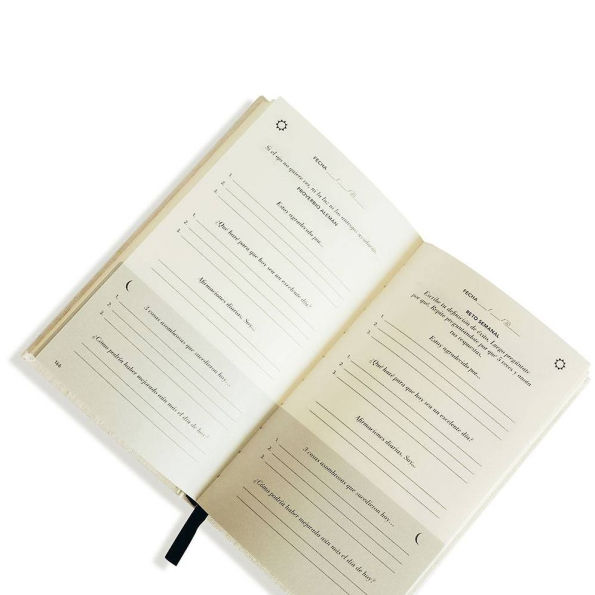 FECHA ___/___/20___
Si el ojo no quiere ver, ni la luz ni las
PROVERBIO ALEMÁN
Estoy agradecido por...
1.
2.
3.
¿Qué haré para que hoy sea un excelente día?
1.
2.
3.
Afirmaciones diarias. Soy...
3 cosas asombrosas que sucedieron hoy...
1.
2.
3.
¿Cómo podría haber mejorado aún más el día de hoy?
146
FECHA ___/___/20___
RETO SEMANAL
Escribe tu definición de éxito. Luego pregúntate
por qué. Repite preguntándote por qué 3 veces y anota
tus respuestas.
Estoy agradecido por...
1.
2.
3.
¿Qué haré para que hoy sea un excelente día?
1.
2.
3.
Afirmaciones diarias. Soy...
3 cosas asombrosas que sucedieron hoy...
1.
2.
3.
¿Cómo podría haber mejorado aún más el día de hoy?